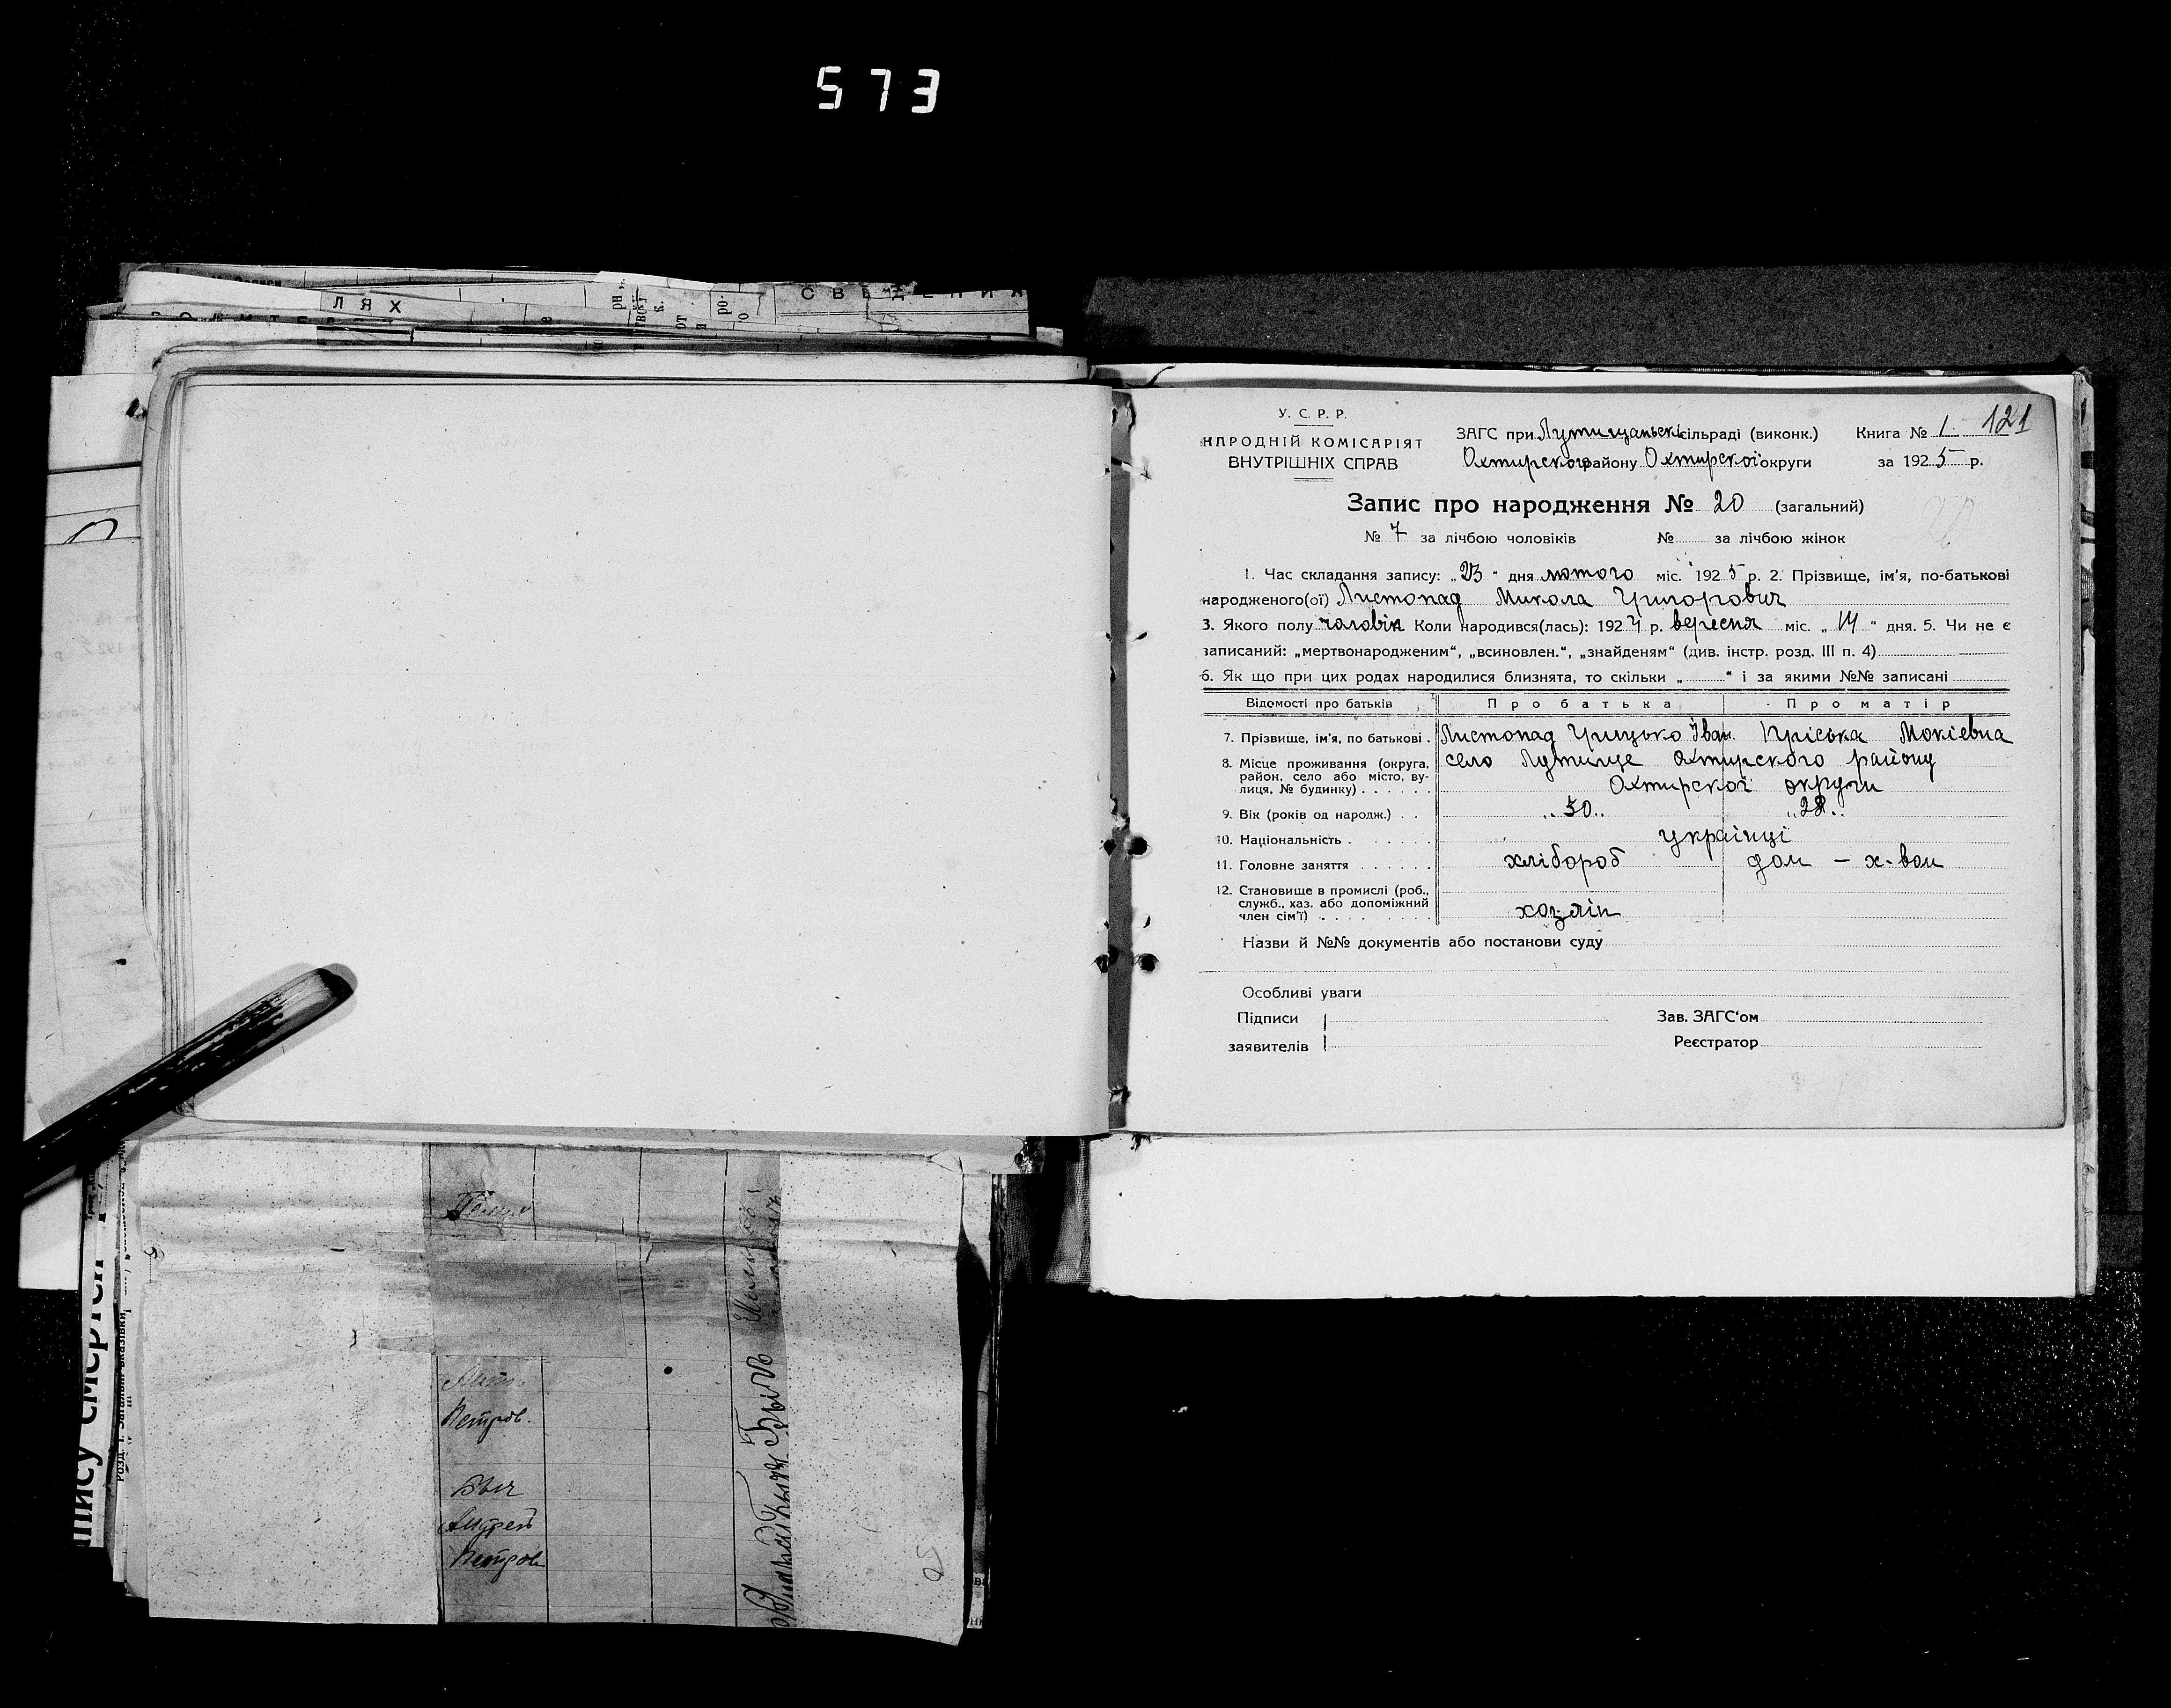 573
ЛЯХ
У. С. Р. Р.
НАРОДНІЙ КОМІСАРІЯТ
ВНУТРІШНІХ СПРАВ
ЗАГС при Лутищанськ. сільраді (виконк.)
Охтирського району Охтирської округи
Книга № 1 121
за 1925 р.
Запис про народження № 20 (загальний)
№ 7 за лічбою чоловіків № за лічбою жінок
1. Час складання запису: „23“ дня лютого міс. 1925 р. 2. Прізвище, ім'я, по-батькові
народженого(ої) Листопад Микола Григорович
3. Якого полу чоловік Коли народився(лась): 1924 р. вересня міс. „14“ дня. 5. Чи не є
записаний: „мертвонародженим“, „всиновлен.“, „знайденям“ (див. інстр. розд. III п. 4)
6. Як що при цих родах народилися близнята, то скільки „ “ і за якими №№ записані
Відомості про батьків Про батька Про матір
7. Прізвище, ім'я, по батькові . Листопад Грицько Іван. Пріська Мокієвна
8. Місце проживання (округа, район, село або місто, вулиця, № будинку) . . . . . . село Лутище Охтирского району
Охтирскої округи
9. Вік (років од народж.) . . „50„ „28„
10. Національність . . . . . . . українці
11. Головне заняття . . . . . . хлібороб дом – х-вом
12. Становище в промислі (роб.,
служб., хаз. або допоміжний
член сім'ї) . . . . . . . . хозяін
Назви й №№ документів або постанови суду
Особливі уваги
Підписи
заявителів
Зав. ЗАГС'ом
Реєстратор
Петров.
Андрей
Петров